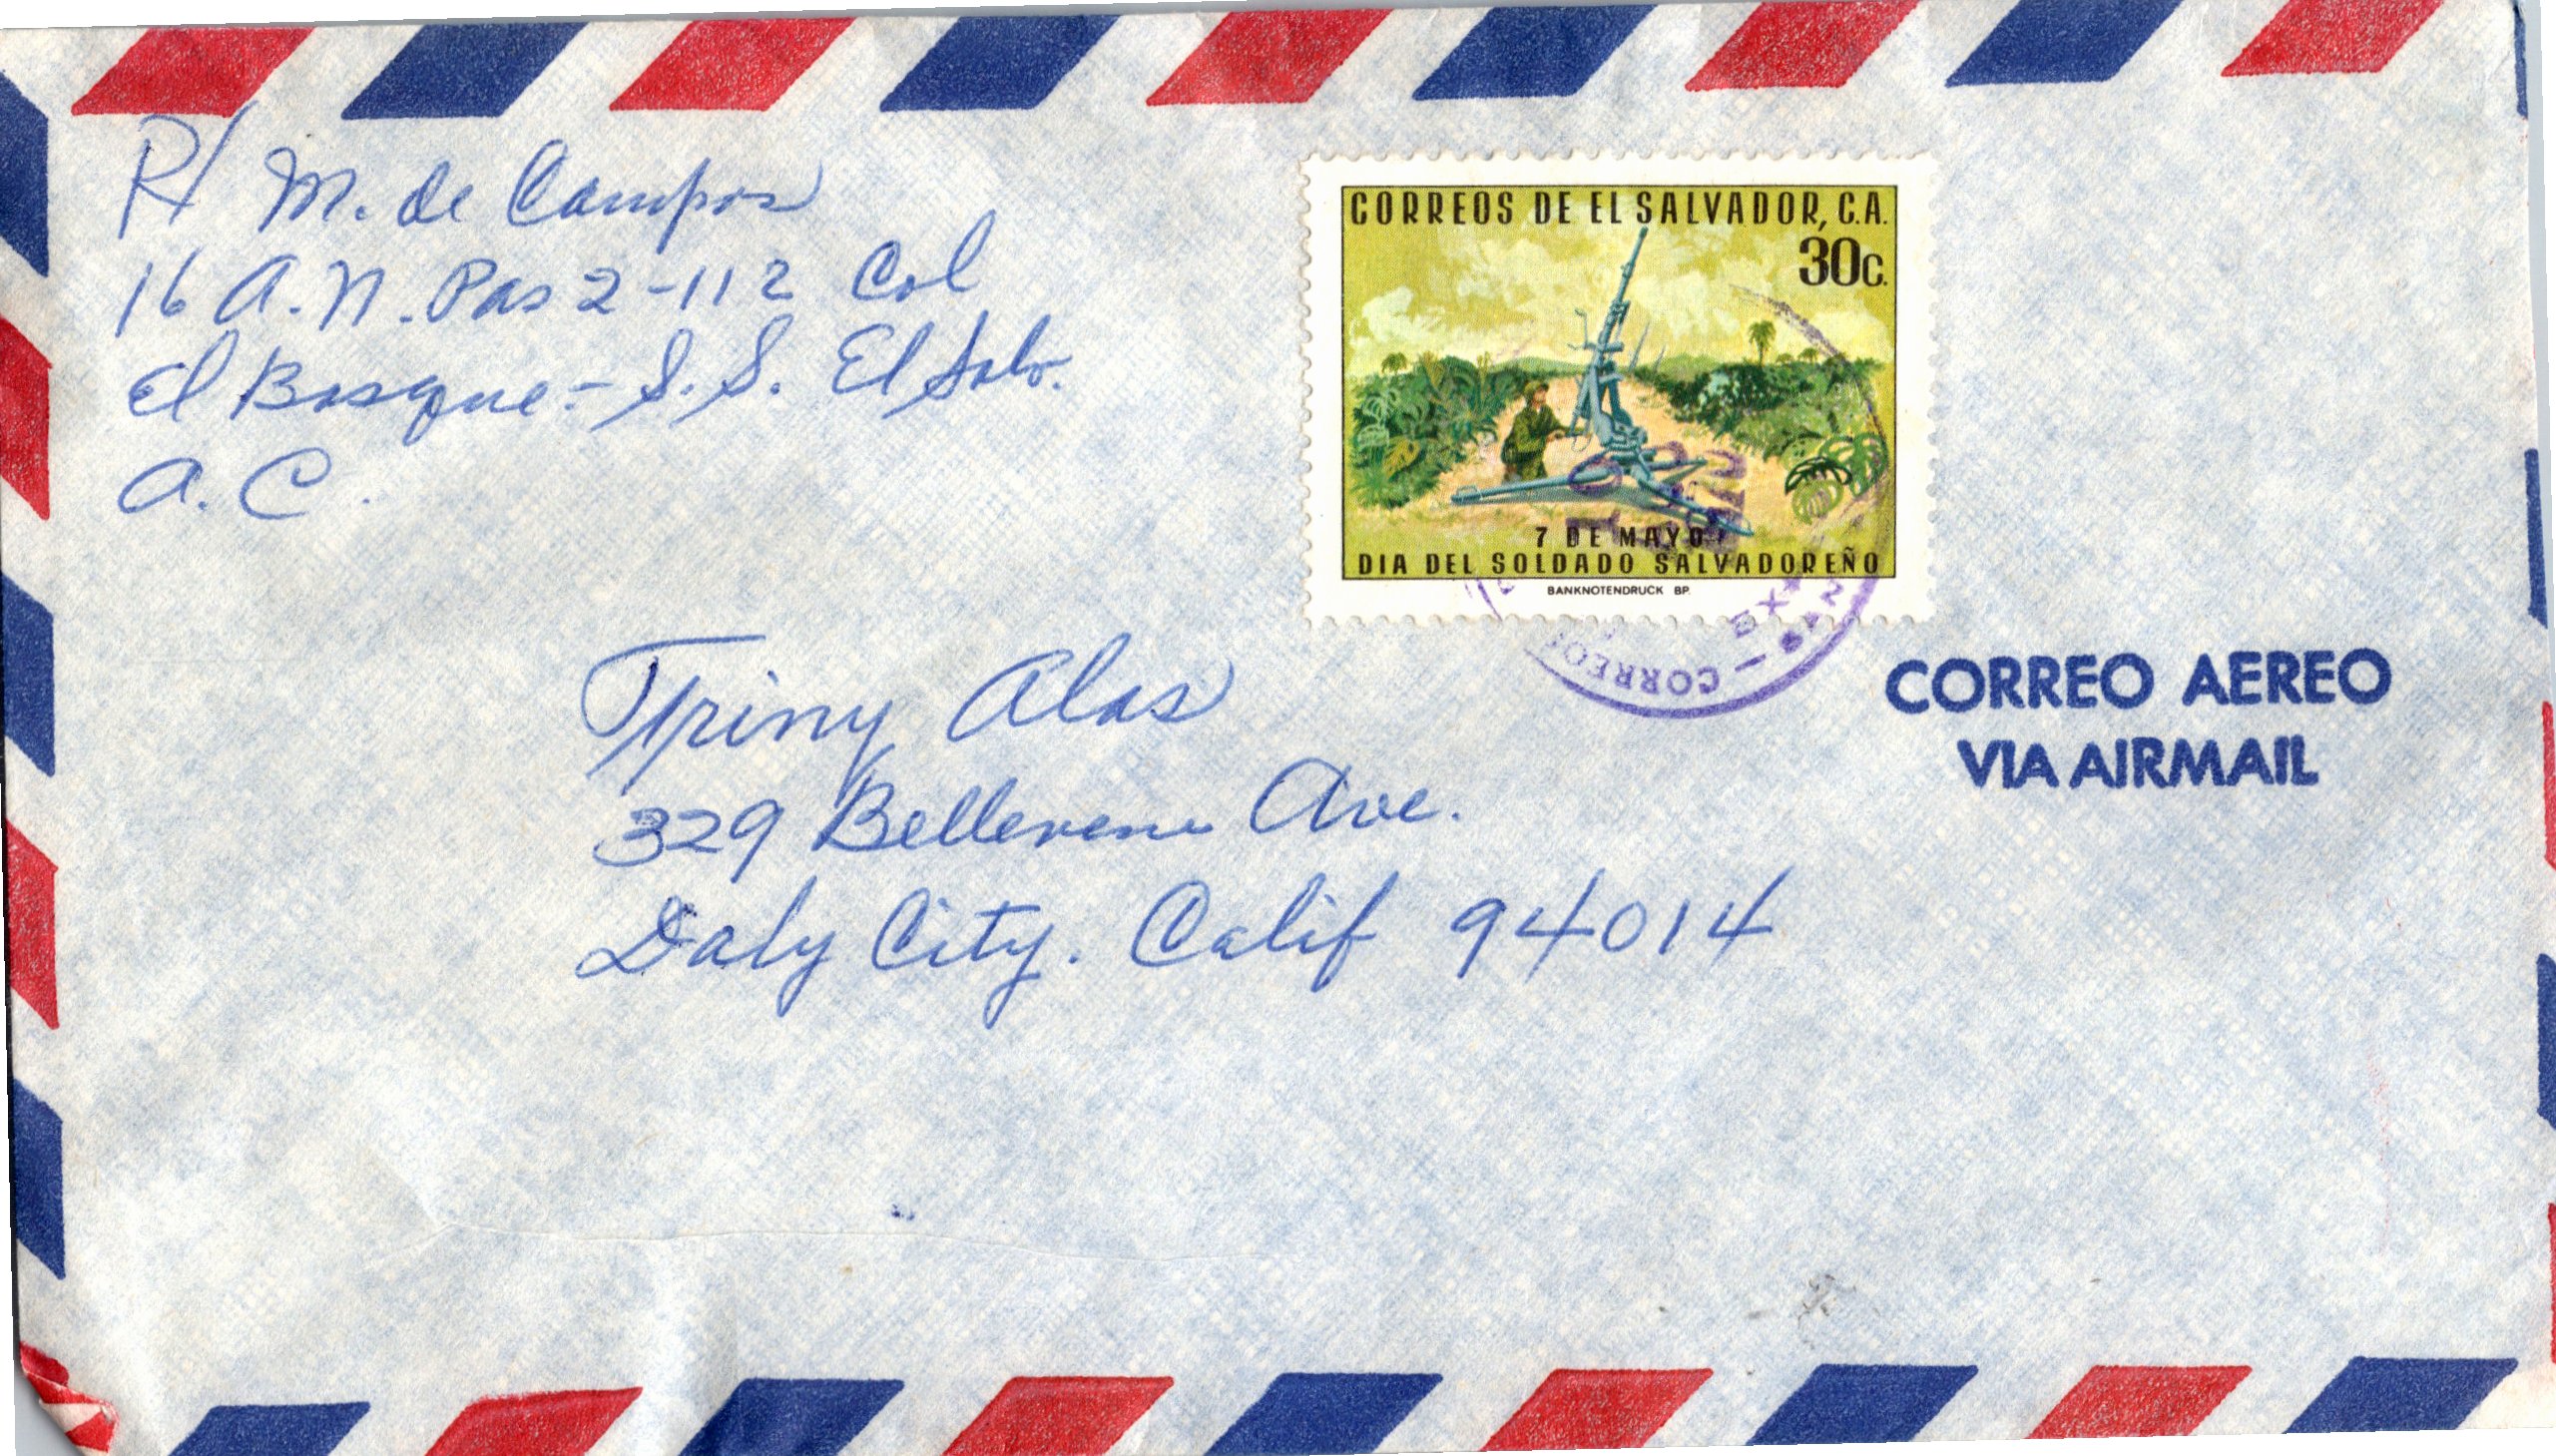 R/ M. de Campos
16 A.N. Pas 2-112 Col
El Bosque- S.S. El Salv.
A.C.
CORREOS DE EL SALVADOR, C.A.
30c.
7 DE MAYO
DIA DEL SOLDADO SALVADOREÑO
BANKNOTENDRUCK BP.
CORREOS
CORREO AEREO
VIA AIRMAIL
Triny Alas
329 Belleveue Ave.
Daly City. Calif 94014